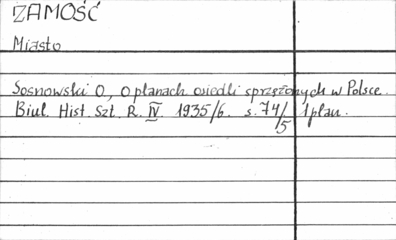 ZAMOŚĆ
Miasto
Sosnowski O, O planach osiedli sprzężonych w Polsce.
Biul. Hist. Szt. R. IV. 1935/6. s. 74/5 1 plan.